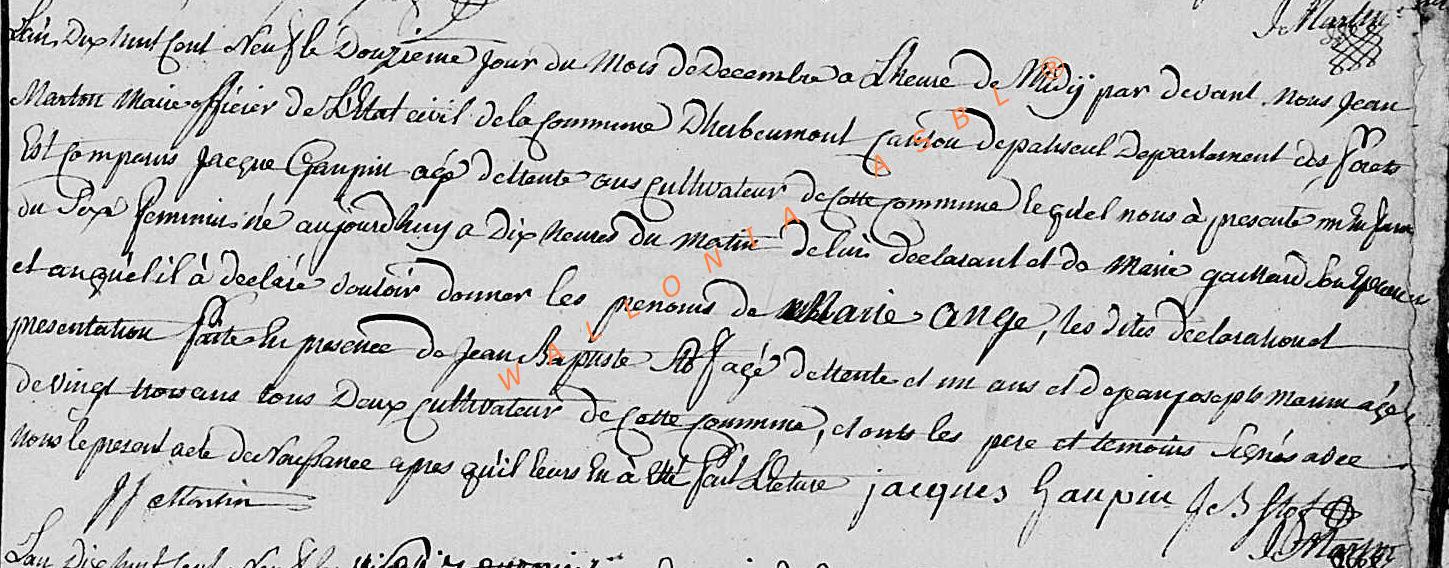 J Martin
L'an Dix huit Cent Neuf le Douzieme Jour du Mois de Decembre a L'heure de Midy par devant Nous Jean
Martin Maire officier de L'Etat civil de la commune D'herbeumont Canton de paliseul Departement des forets
Est comparus Jacque Gaupin agé de trente ans cultivateur de cette commune lequel nous à presenté un Enfant
du Sexe feminin né aujourdhuy a Dix heures du matin de lui declarant et de Marie gaillard Son Epouse
et auquel il à declaré vouloir donner les prenoms de Marie Ange, les dites declaration et
presentation faite En presence de Jean Baptiste agé de trente et un ans et de jean joseph agé
de vingt trois ans tous Deux cultivateur de cette commune, et onts les pere et temoins Signés avec
Nous le present acte de Naissance apres qu'il leurs En à été fait Lecture jacques Gaupin J B
JJ Martin
J Martin
L'an Dix huit Cent Neuf le
WALLONIA ASBL ®